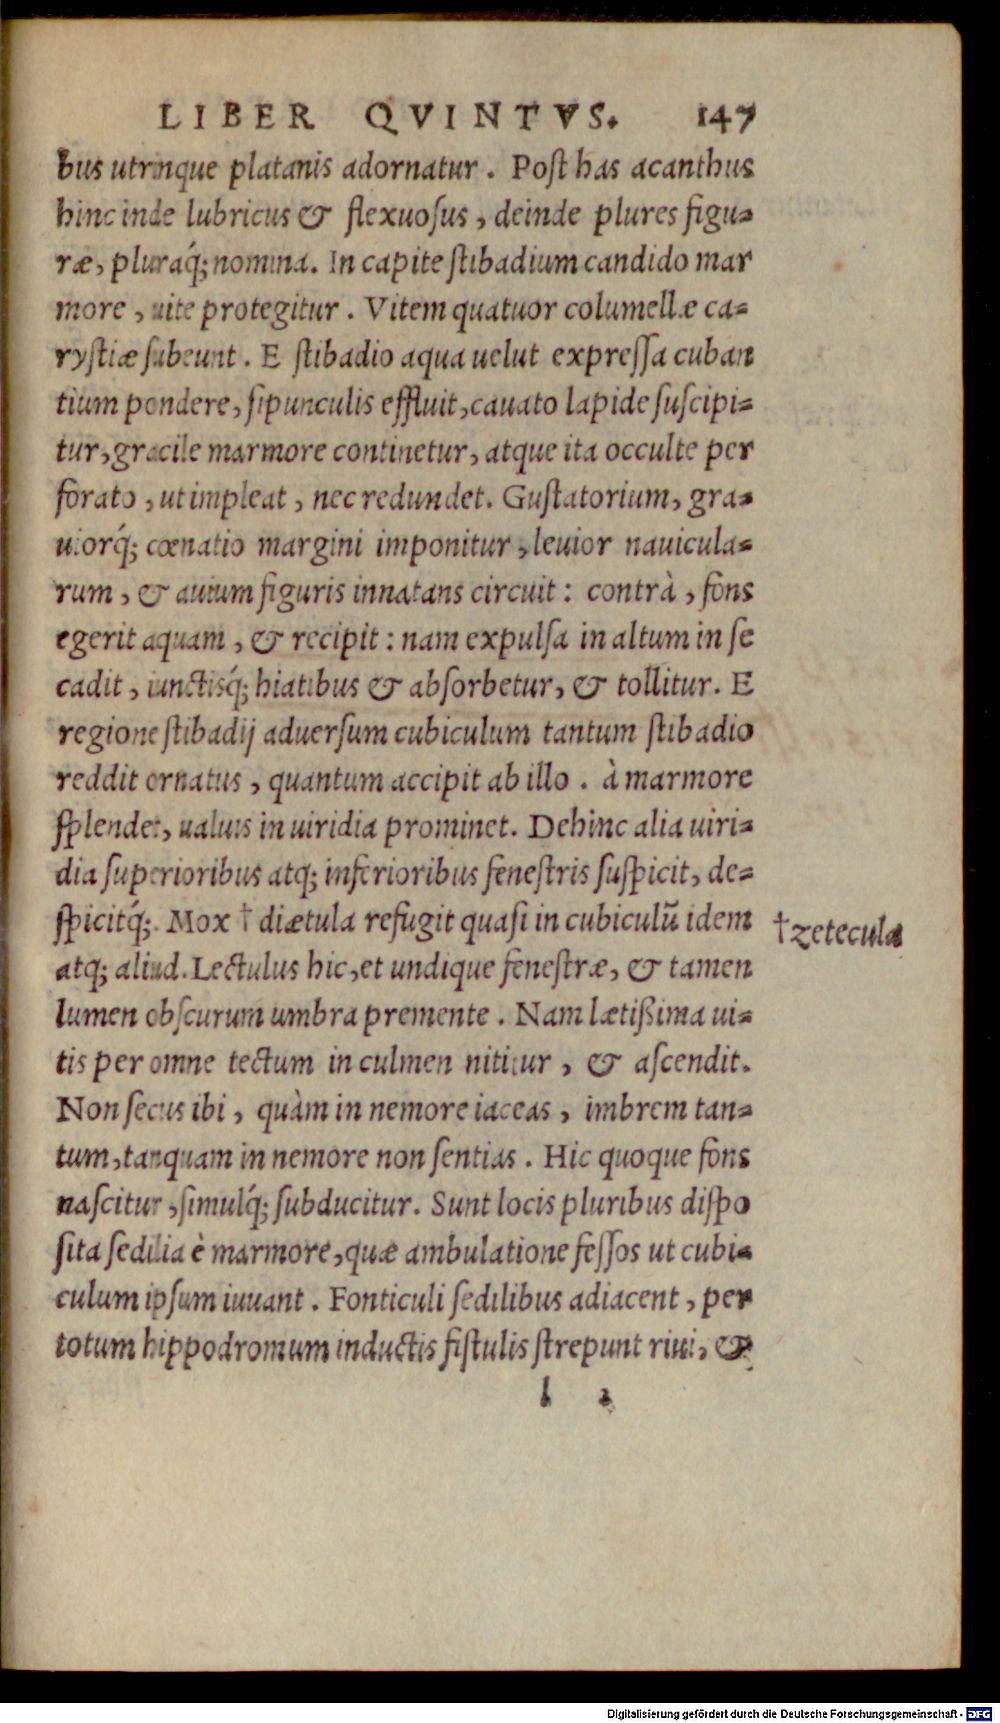 LIBER QVINTVS. 147
bus utrinque platanis adornatur. Post has acanthus
hinc inde lubricus & flexuosus, deinde plures figu-
ræ, pluraq́; nomina. In capite stibadium candido mar
more, uite protegitur. Vitem quatuor columellæ ca-
rystiæ subeunt. E stibadio aqua uelut expressa cuban
tium pondere, sipunculis effluit, cauato lapide suscipi-
tur, gracile marmore continetur, atque ita occulte per
forato, ut impleat, nec redundet. Gustatorium, gra-
uiorq́; cœnatio margini imponitur, leuior nauicula-
rum, & auium figuris innatans circuit: contrà, fons
egerit aquam, & recipit: nam expulsa in altum in se
cadit, iunctisq́; hiatibus & absorbetur, & tollitur. E
regione stibadij aduersum cubiculum tantum stibadio
reddit ornatus, quantum accipit ab illo. à marmore
splendet, ualuis in uiridia prominet. Dehinc alia uiri-
dia superioribus atq; inferioribus fenestris suspicit, de-
spicitq́;. Mox † diætula refugit quasi in cubiculũ idem
†zetecula
atq; aliud. Lectulus hic, et undique fenestræ, & tamen
lumen obscurum umbra premente. Nam lætißima ui-
tis per omne tectum in culmen nititur, & ascendit.
Non secus ibi, quàm in nemore iaceas, imbrem tan-
tum, tanquam in nemore non sentias. Hic quoque fons
nascitur, simulq́; subducitur. Sunt locis pluribus dispo
sita sedilia è marmore, quæ ambulatione fessos ut cubi-
culum ipsum iuuant. Fonticuli sedilibus adiacent, per
totum hippodromum inductis fistulis strepunt riui, &
l 2
Digitalisierung gefördert durch die Deutsche Forschungsgemeinschaft - DFG